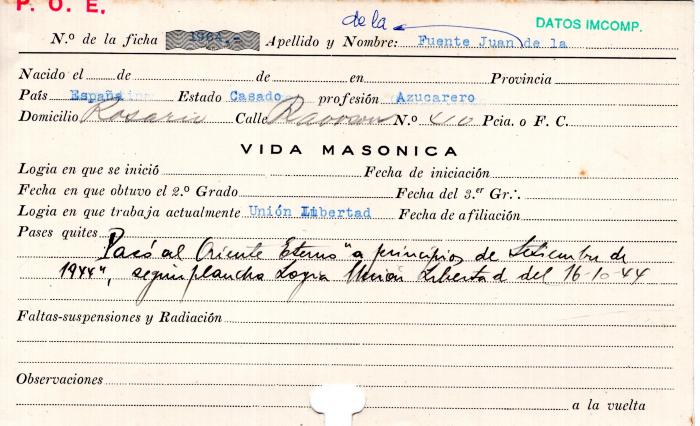 P. O. E.
de la
DATOS IMCOMP.
N.º de la ficha 1964.- Apellido y Nombre: Fuente Juan de la
Nacido el de de en Provincia
País España Estado Casado profesión Azucarero
Domicilio Rosario Calle N.º 410 Pcia. o F. C.
VIDA MASONICA
Logia en que se inició Fecha de iniciación
Fecha en que obtuvo el 2.º Grado Fecha del 3.er Gr∴
Logia en que trabaja actualmente Unión Libertad Fecha de afiliación
Pases quites
Pasó al Oriente Eterno "a principios de Setiembre de
1944", segun plancha Logia Unión Libertad del 16-10-44
Faltas-suspensiones y Radiación
Observaciones
a la vuelta